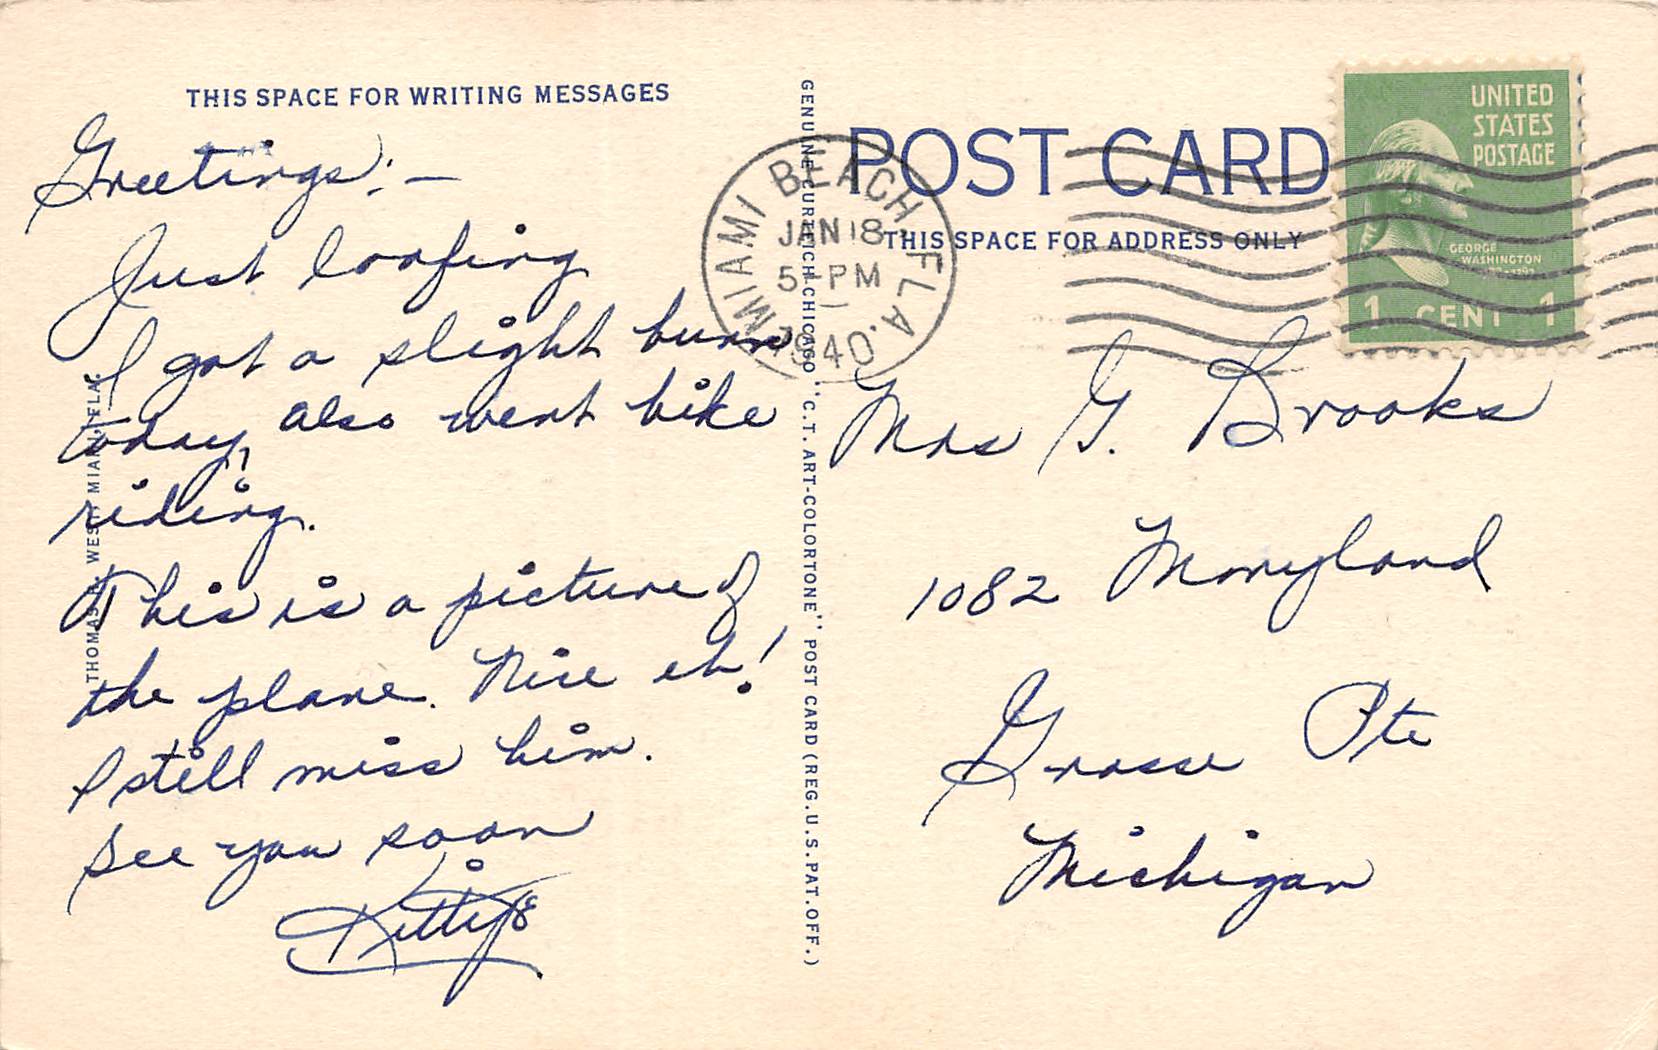 THIS SPACE FOR WRITING MESSAGES
Greetings:—
Just loafing
I got a slight burn
today, also went bike
riding.
This is a picture of
the plane. Nice eh!
I still miss him.
See you soon
Kitty
THOMAS WEST MIAMI, FLA.
GENUINE CURTEICH-CHICAGO "C.T. ART-COLORTONE" POST CARD (REG. U.S. PAT. OFF.)
MIAMI BEACH, FLA.
JAN 18
5-PM
1940
POST CARD
THIS SPACE FOR ADDRESS ONLY
UNITED
STATES
POSTAGE
GEORGE
WASHINGTON
1 CENT 1
Mrs G. Brooks
1082 Maryland
Grosse Pte
Michigan